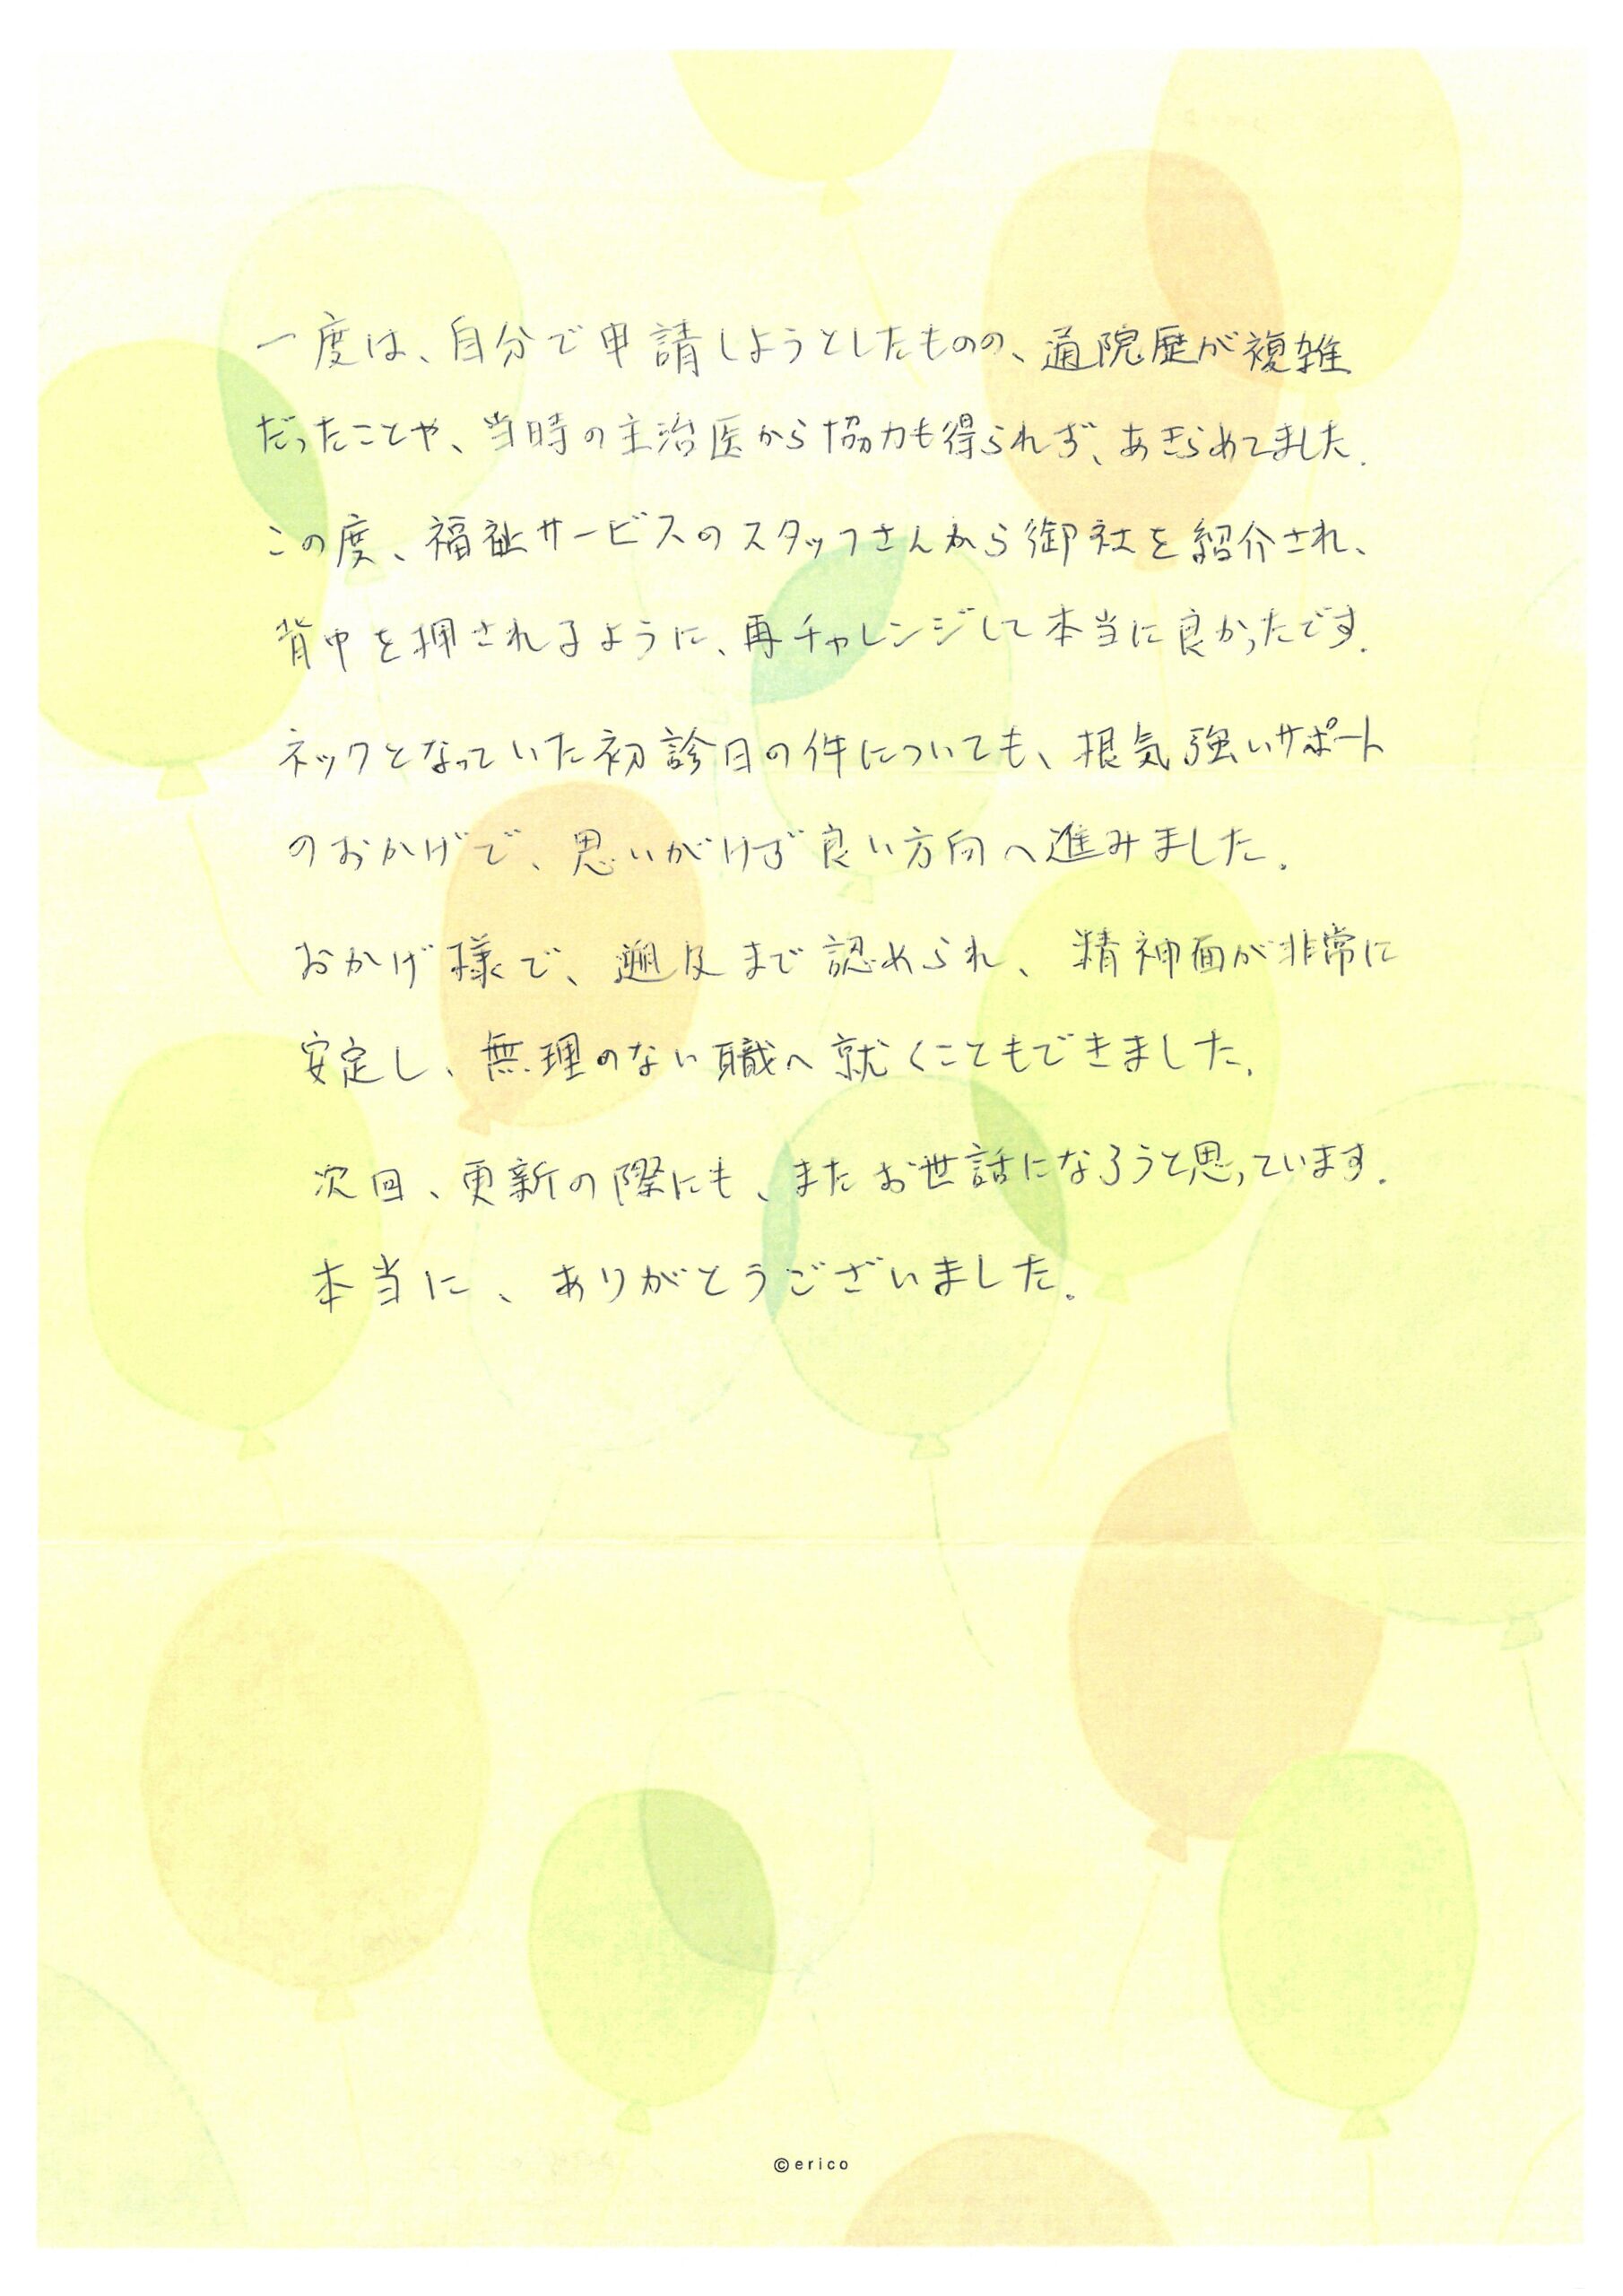 一度は、自分で申請しようとしたものの、通院歴が複雑
だったことや、当時の主治医から協力も得られず、あきらめてました.
この度、福祉サービスのスタッフさんから御社を紹介され、
背中を押されるように、再チャレンジして本当に良かったです.
ネックとなっていた初診日の件についても、根気強いサポート
のおかげで、思いがけず良い方向へ進みました.
おかげ様で、遡及まで認められ、精神面が非常に
安定し、無理のない職へ就くこともできました.
次回、更新の際にも、またお世話になろうと思っています.
本当に、ありがとうございました.
©erico